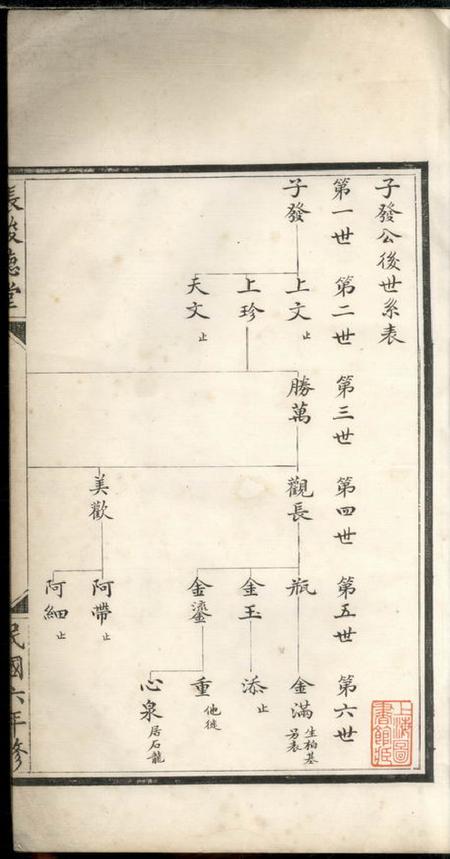 子發公後世系表
第一世
第二世
第三世
第四世
第五世
第六世
子發
上文 止
上珍
天文 止
勝萬
觀長
美歡
瓶
金玉
金鎏
阿帶 止
阿細 止
金滿 生柏基另表
添 止
重 他徙
心泉 居石龍
德堂
民國六年修
上海圖書館藏